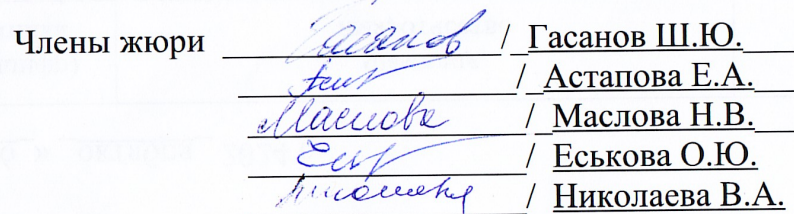 Члены жюри Гасанов / Гасанов Ш.Ю.
/ Астапова Е.А.
Маслова / Маслова Н.В.
/ Еськова О.Ю.
/ Николаева В.А.